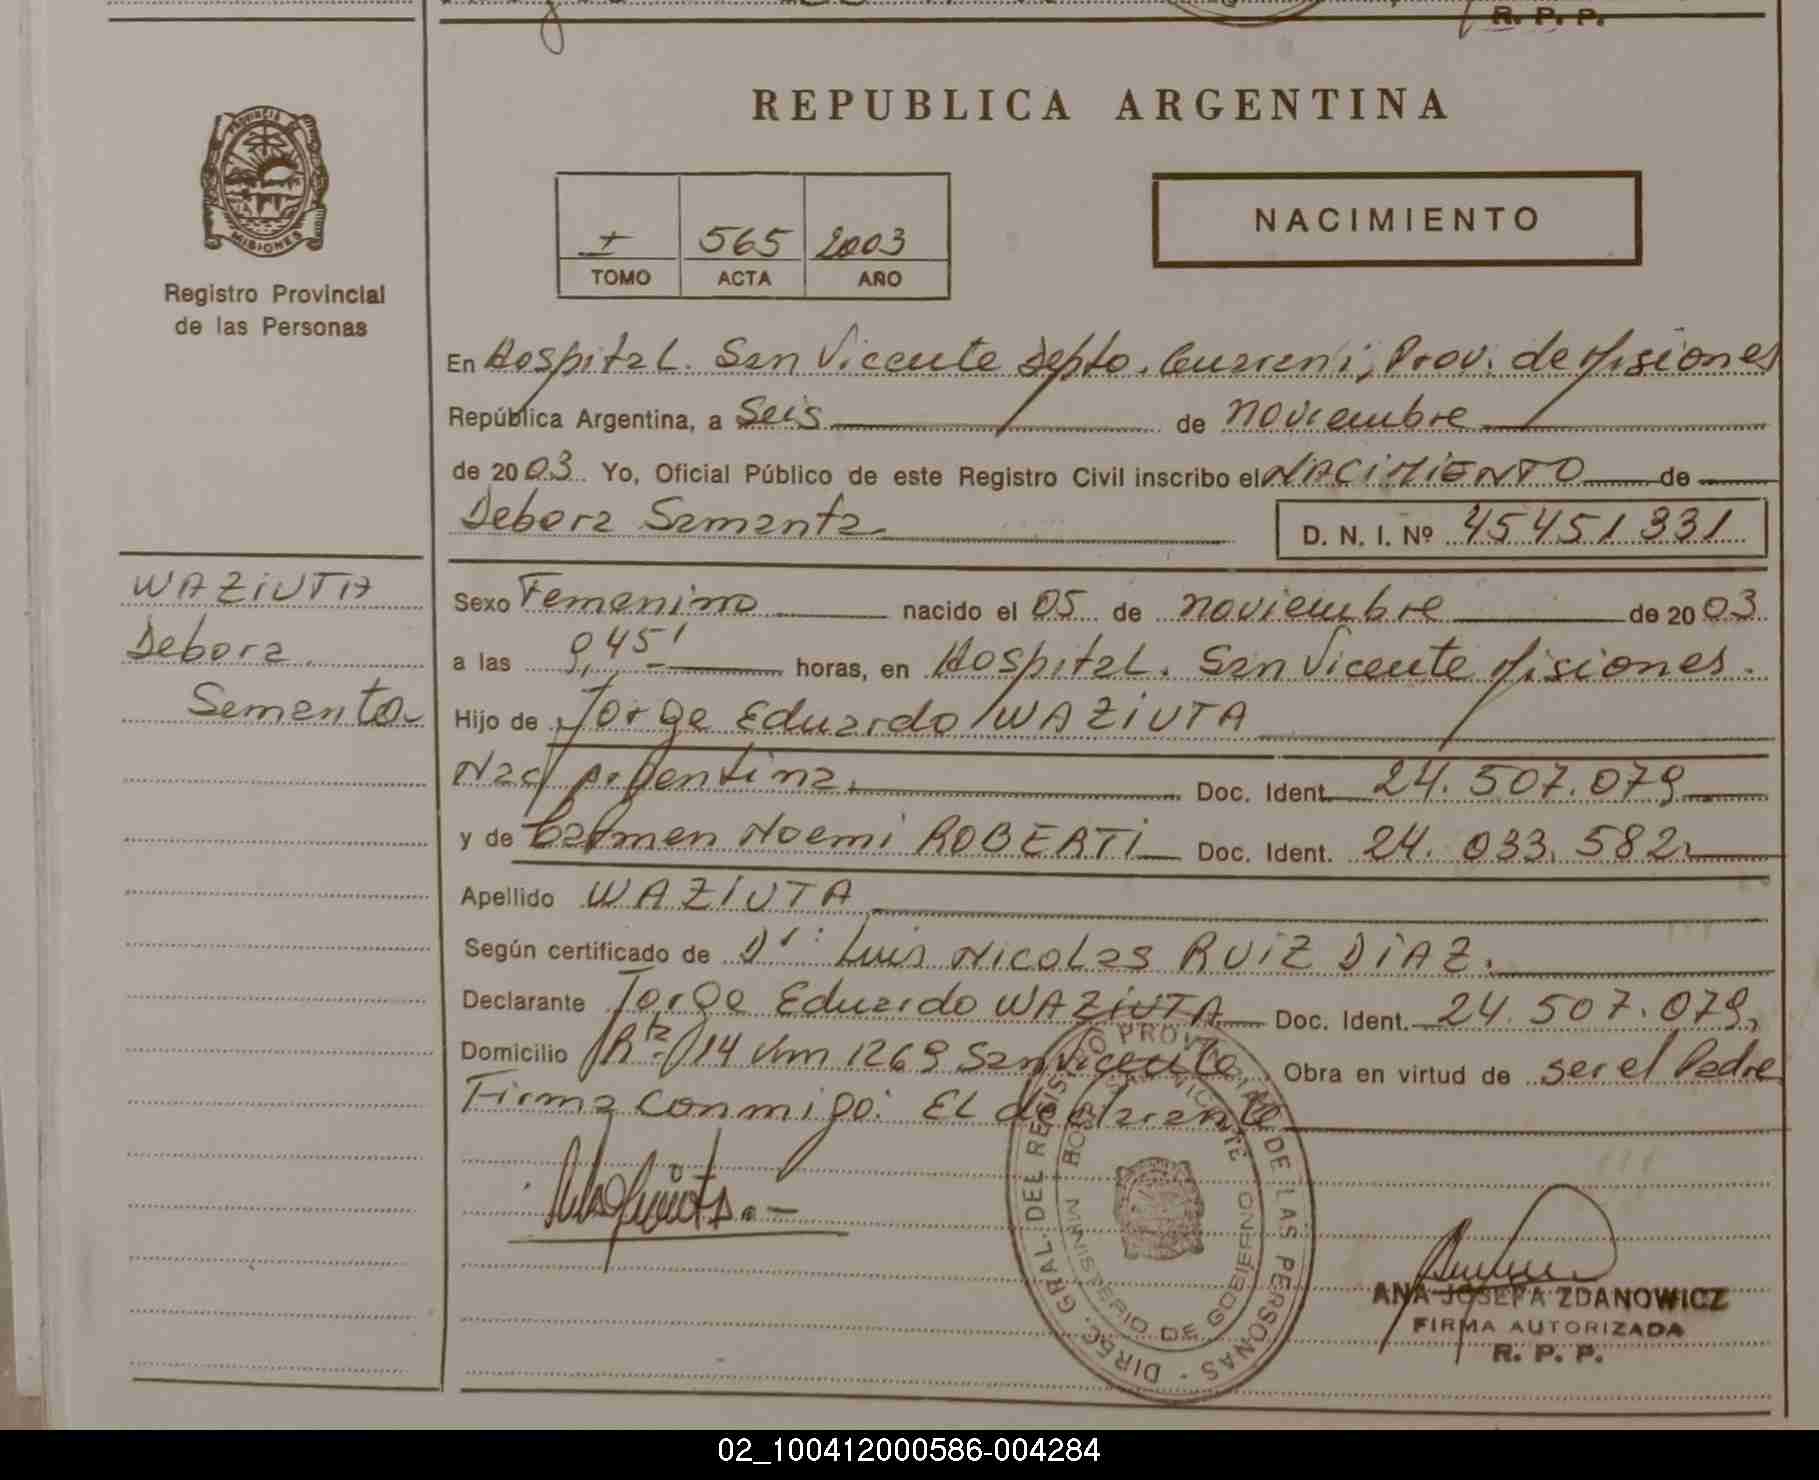 R. P. P.
PROVINCIA DE
MISIONES
Registro Provincial
de las Personas
REPUBLICA ARGENTINA
I 565 2003
TOMO ACTA AÑO
NACIMIENTO
En Hospital. San Vicente Depto. Guarani, Prov. de Misiones
República Argentina, a Seis de noviembre
de 2003. Yo, Oficial Público de este Registro Civil inscribo el NACIMIENTO de
Debora Samanta
D. N. I. Nº 45451331
WAZIUTA
Debora
Samanta
Sexo Femenino nacido el 05 de noviembre de 2003
a las 9,45' horas, en Hospital. San Vicente Misiones.
Hijo de Jorge Eduardo WAZIUTA
Nac/ Argentina. Doc. Ident. 24.507.079
y de Carmen Noemi ROBERTI Doc. Ident. 24.033.582.
Apellido WAZIUTA
Según certificado de Dr: Luis Nicolas RUIZ DIAZ.
Declarante Jorge Eduardo WAZIUTA Doc. Ident. 24.507.079,
Domicilio Rta. 14 Km 1269 San Vicente. Obra en virtud de ser el Padre
Firma conmigo: El declarante
DIREC. GRAL. DEL REGISTRO PROVINCIAL DE LAS PERSONAS
HOSP. SAN VICENTE
MINISTERIO DE GOBIERNO
ANA JOSEFA ZDANOWICZ
FIRMA AUTORIZADA
R. P. P.
02_100412000586-004284